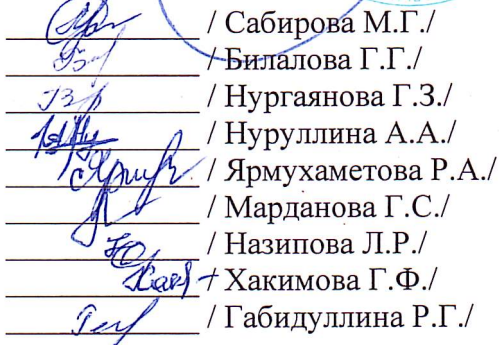 / Сабирова М.Г./
/ Билалова Г.Г./
/ Нургаянова Г.З./
/ Нуруллина А.А./
/ Ярмухаметова Р.А./
/ Марданова Г.С./
/ Назипова Л.Р./
/ Хакимова Г.Ф./
/ Габидуллина Р.Г./